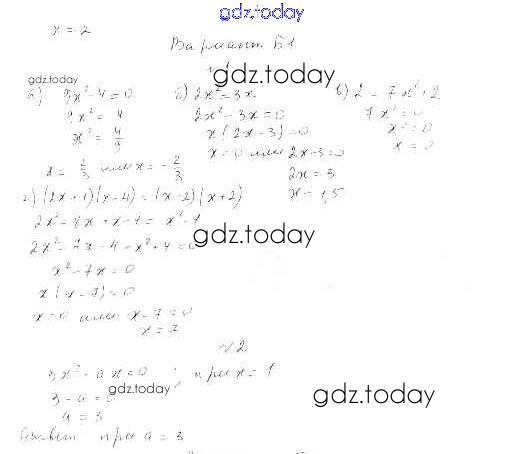 gdz.today
x = -2
Вариант Б1
gdz.today
gdz.today
а) 9x² - 4 = 0
9x² = 4
x² = 4/9
x = 2/3 или x = -2/3
б) 2x² = 3x
2x² - 3x = 0
x(2x - 3) = 0
x = 0 или 2x - 3 = 0
2x = 3
x = 1,5
в) 2 = 7x² + 2
7x² = 0
x² = 0
x = 0
г) (2x + 1)(x - 4) = (x - 2)(x + 2)
2x² - 8x + x - 4 = x² - 4
2x² - 7x - 4 - x² + 4 = 0
gdz.today
x² - 7x = 0
x(x - 7) = 0
x = 0 или x - 7 = 0
x = 7
№2
3x² - ax = 0 ; при x = 1
gdz.today
gdz.today
3 - a = 0
a = 3
Ответ при a = 3